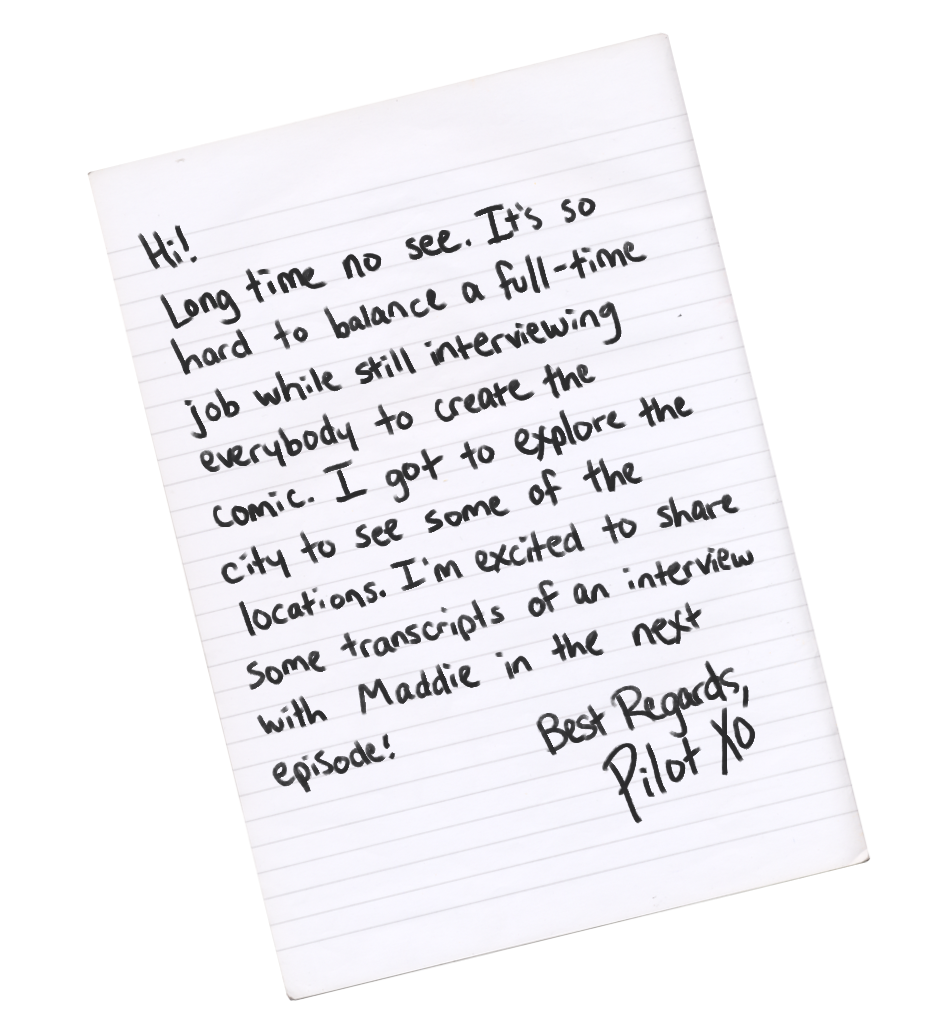 Hi!
Long time no see. It's so
hard to balance a full-time
job while still interviewing
everybody to create the
comic. I got to explore the
city to see some of the
locations. I'm excited to share
some transcripts of an interview
with Maddie in the next
episode!
Best Regards,
Pilot XO